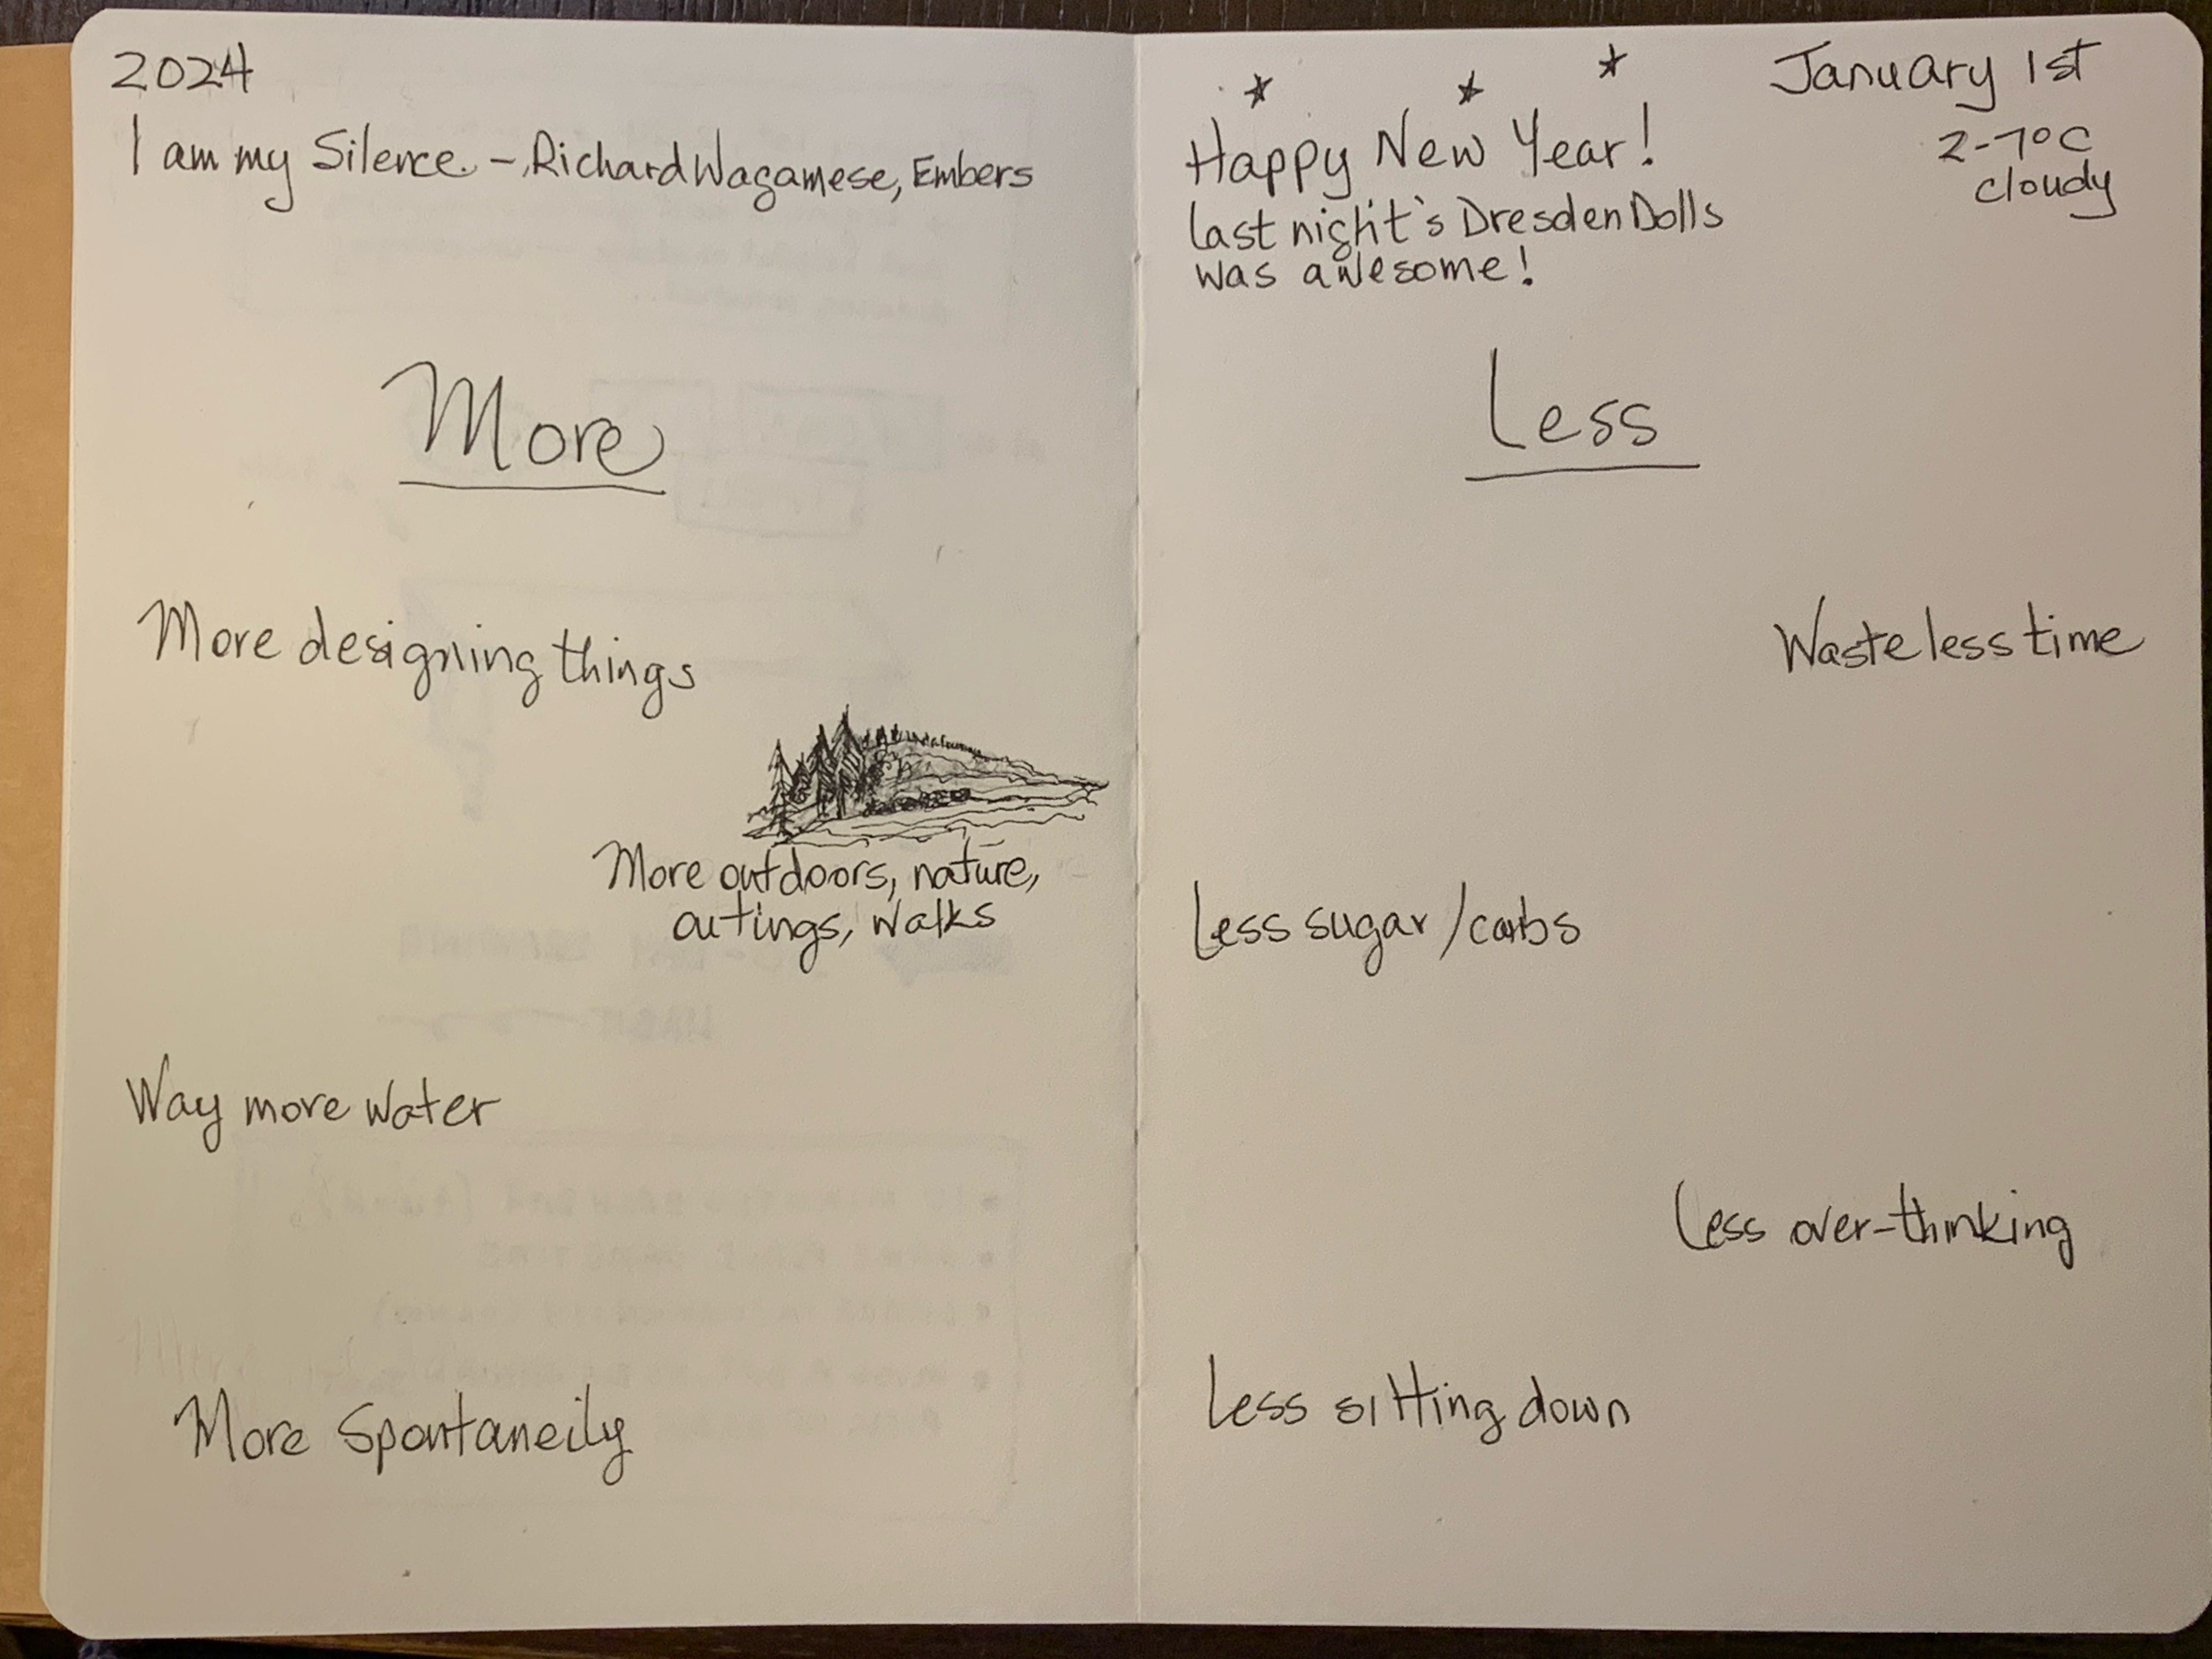 2024
I am my Silence. – Richard Wagamese, Embers
More
More designing things
More outdoors, nature,
outings, walks
Way more water
More Spontaneily
January 1st
2-7°C
cloudy
Happy New Year!
last night's Dresden Dolls
was awesome!
Less
Waste less time
Less sugar/carbs
Less over-thinking
Less sitting down